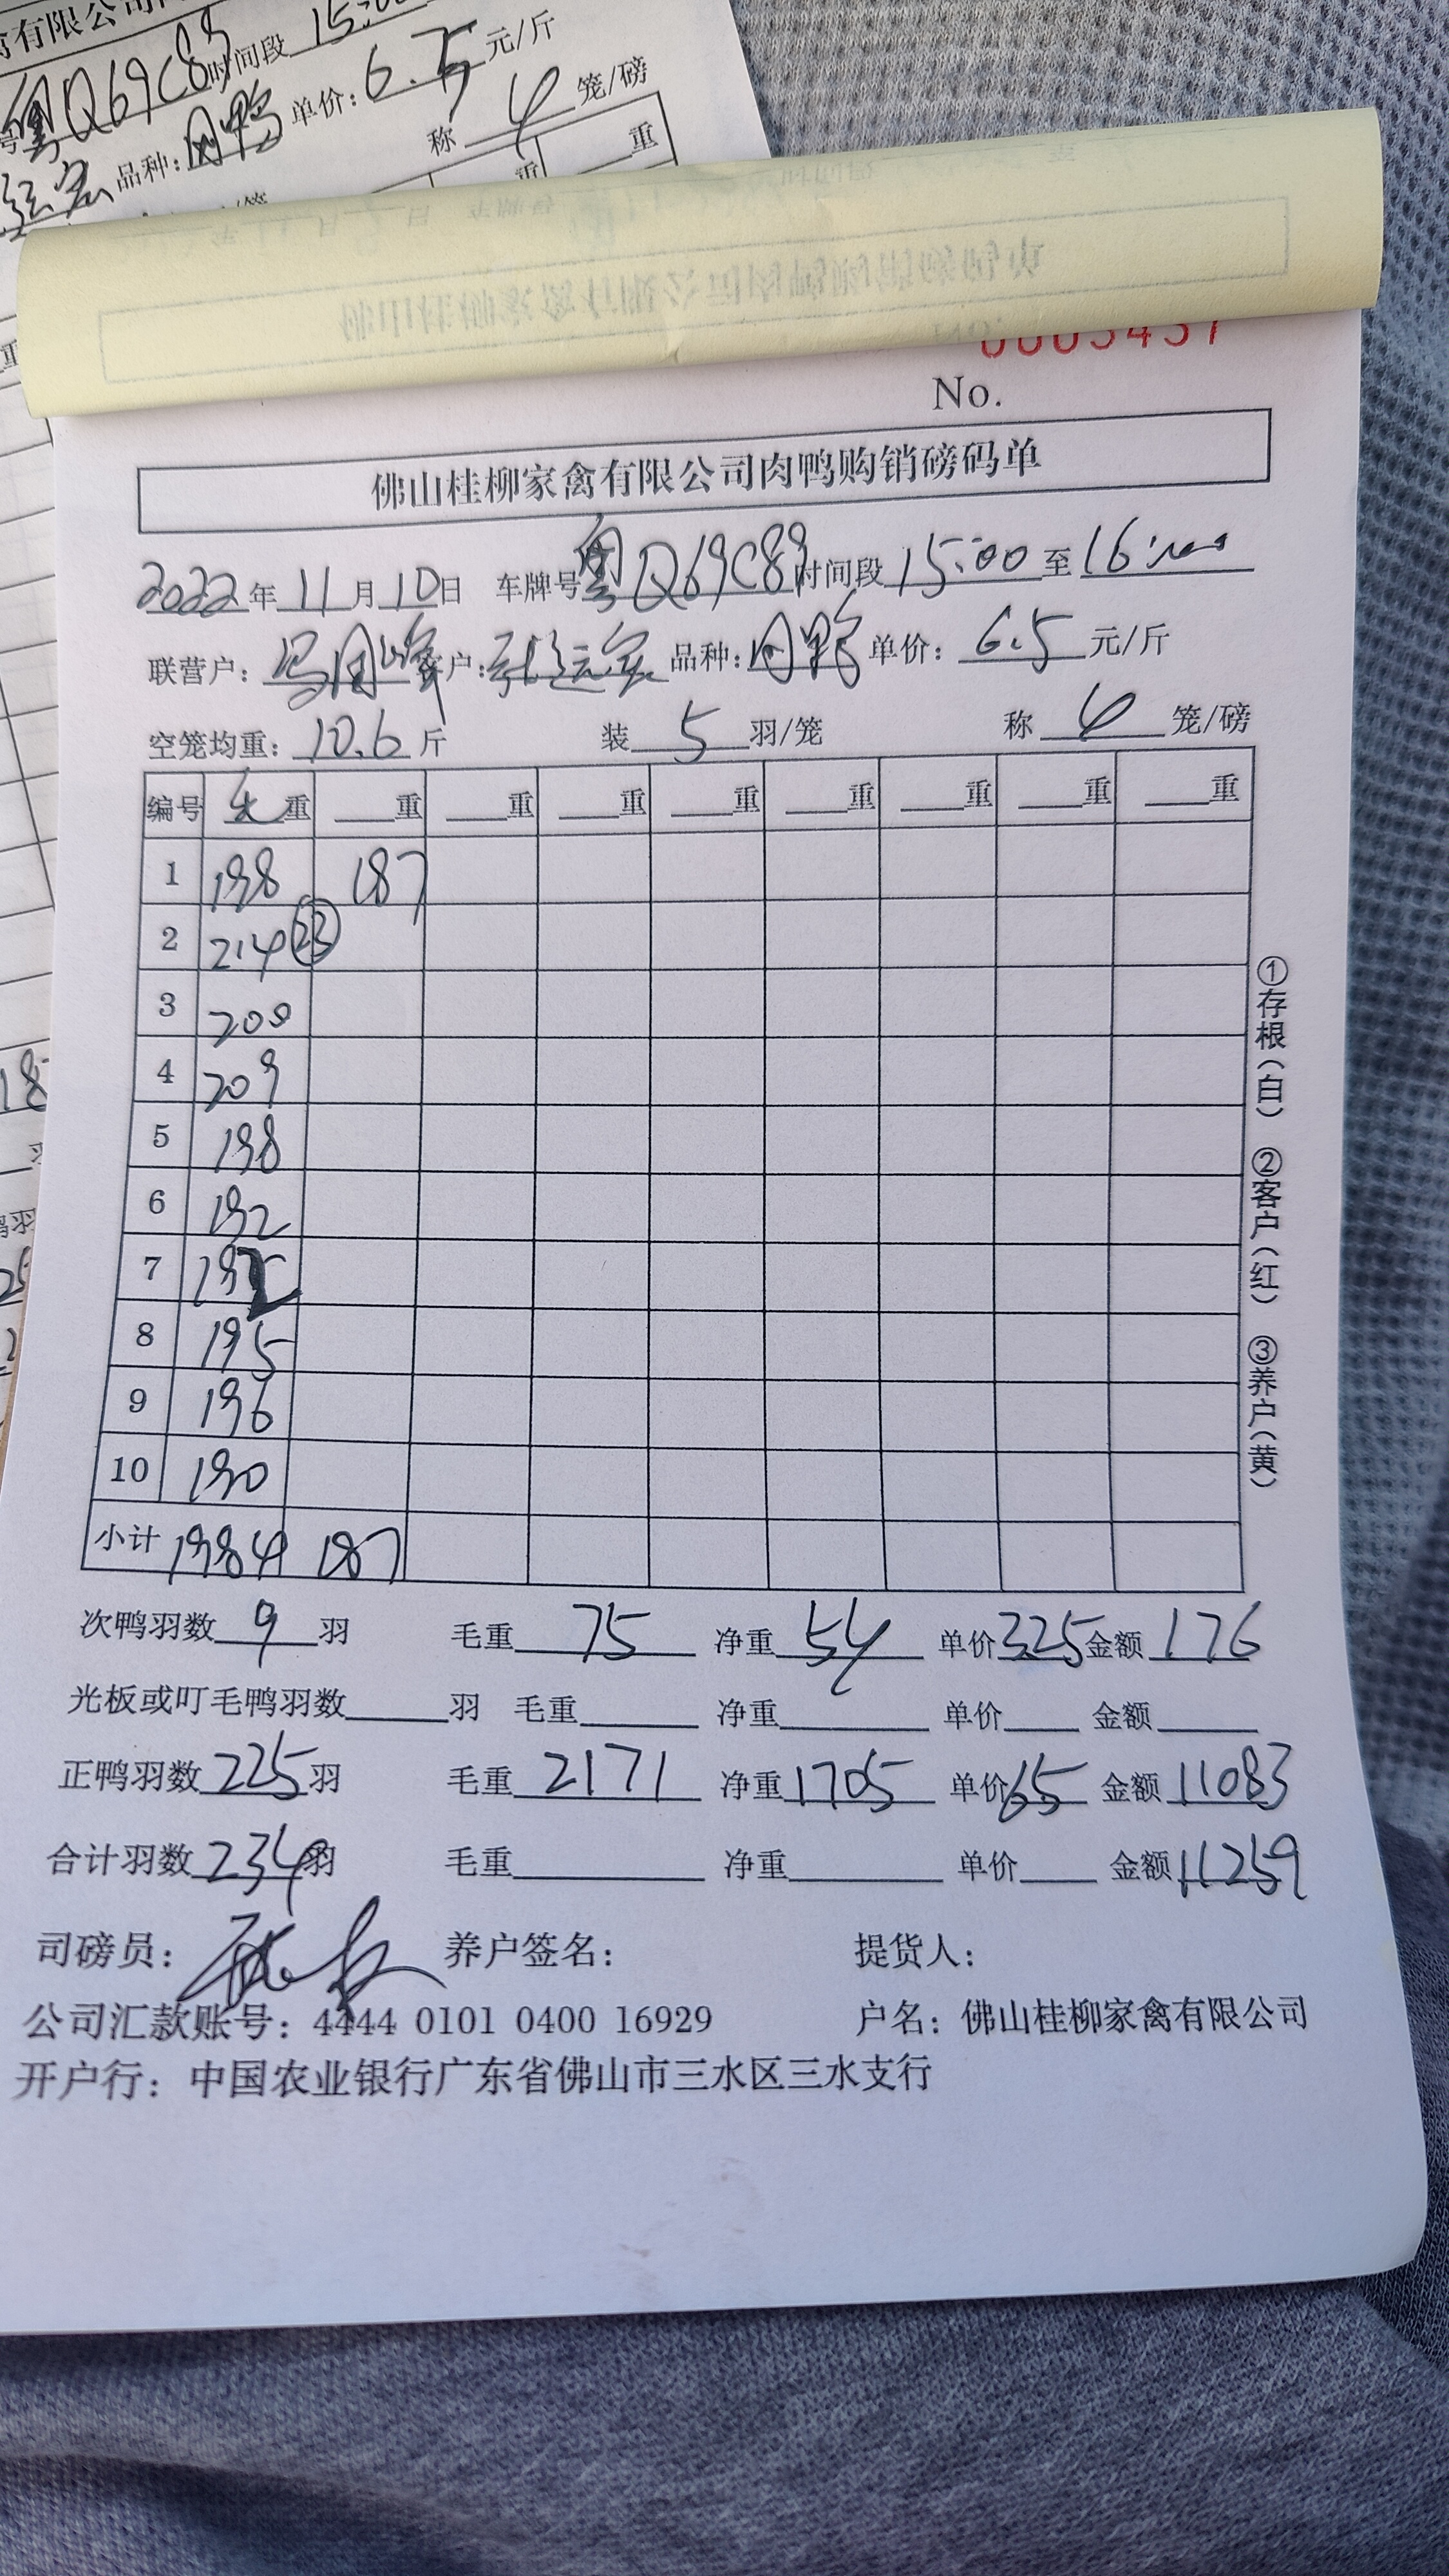 禽有限公司
号粤Q69C89时间段15:00
品种:肉鸭 单价:6.5元/斤
称4笼/磅
重 重
0005437
No.
佛山桂柳家禽有限公司肉鸭购销磅码单
2022年11月10日 车牌号粤Q69C89时间段15:00至16:00
联营户: 户: 品种:肉鸭 单价: 6.5元/斤
空笼均重: 10.6斤 装5羽/笼 称4笼/磅
编号 毛重 重 重 重 重 重 重 重 重
1 198 187
2 214 23
3 200
4 209
5 198
6 192
7 192
8 195
9 196
10 190
小计 1984 187
次鸭羽数9羽 毛重75 净重54 单价3.25金额176
光板或叮毛鸭羽数 羽 毛重 净重 单价 金额
正鸭羽数225羽 毛重2171 净重1705 单价6.5 金额11083
合计羽数234羽 毛重 净重 单价 金额11259
司磅员: 养户签名: 提货人:
公司汇款账号: 4444 0101 0400 16929 户名: 佛山桂柳家禽有限公司
开户行: 中国农业银行广东省佛山市三水区三水支行
①存根(白) ②客户(红) ③养户(黄)